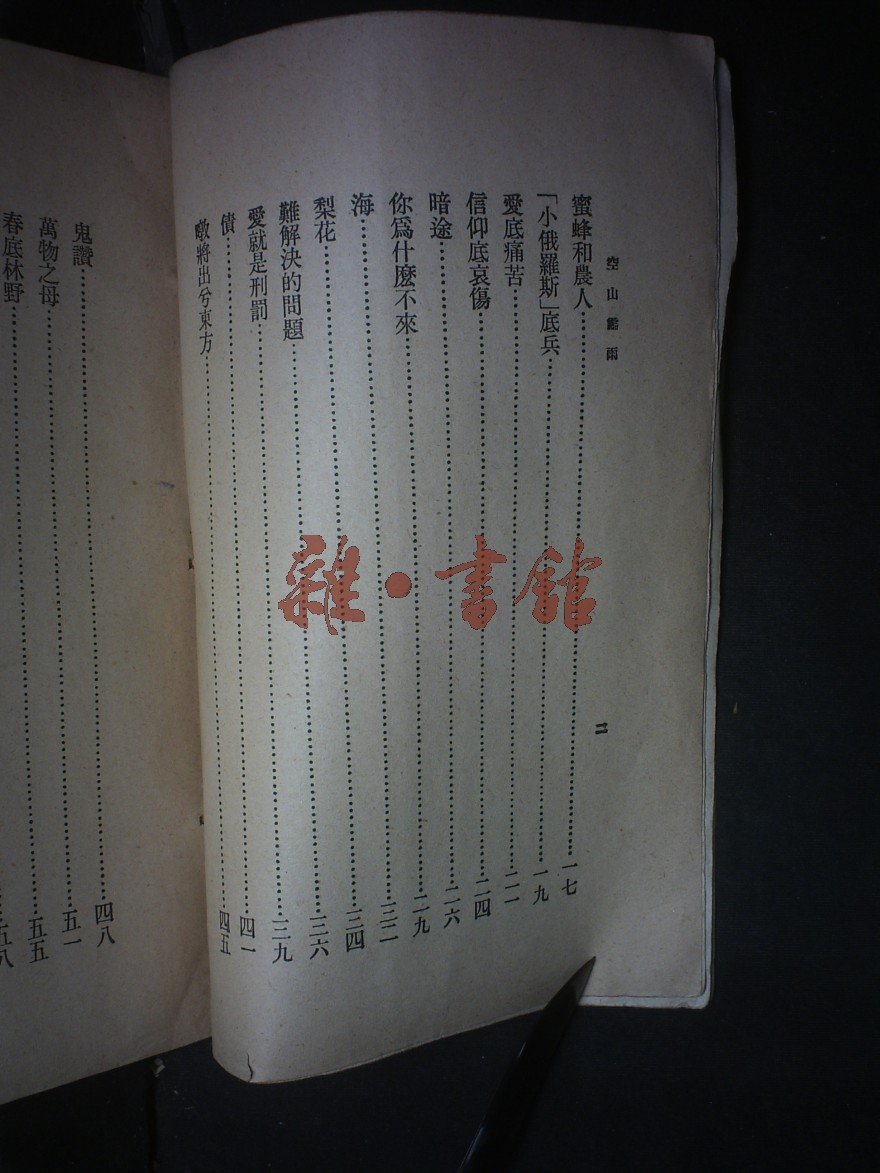 空山靈雨
二
蜜蜂和農人……一七
「小俄羅斯」底兵……一九
愛底痛苦……二一
信仰底哀傷……二四
暗途……二六
你爲什麽不來……二九
海……三二
梨花……三四
難解決的問題……三六
愛就是刑罰……三九
債……四一
暾將出兮東方……四五
鬼讚……四八
萬物之母……五一
春底林野……五五
五八
雜·書館